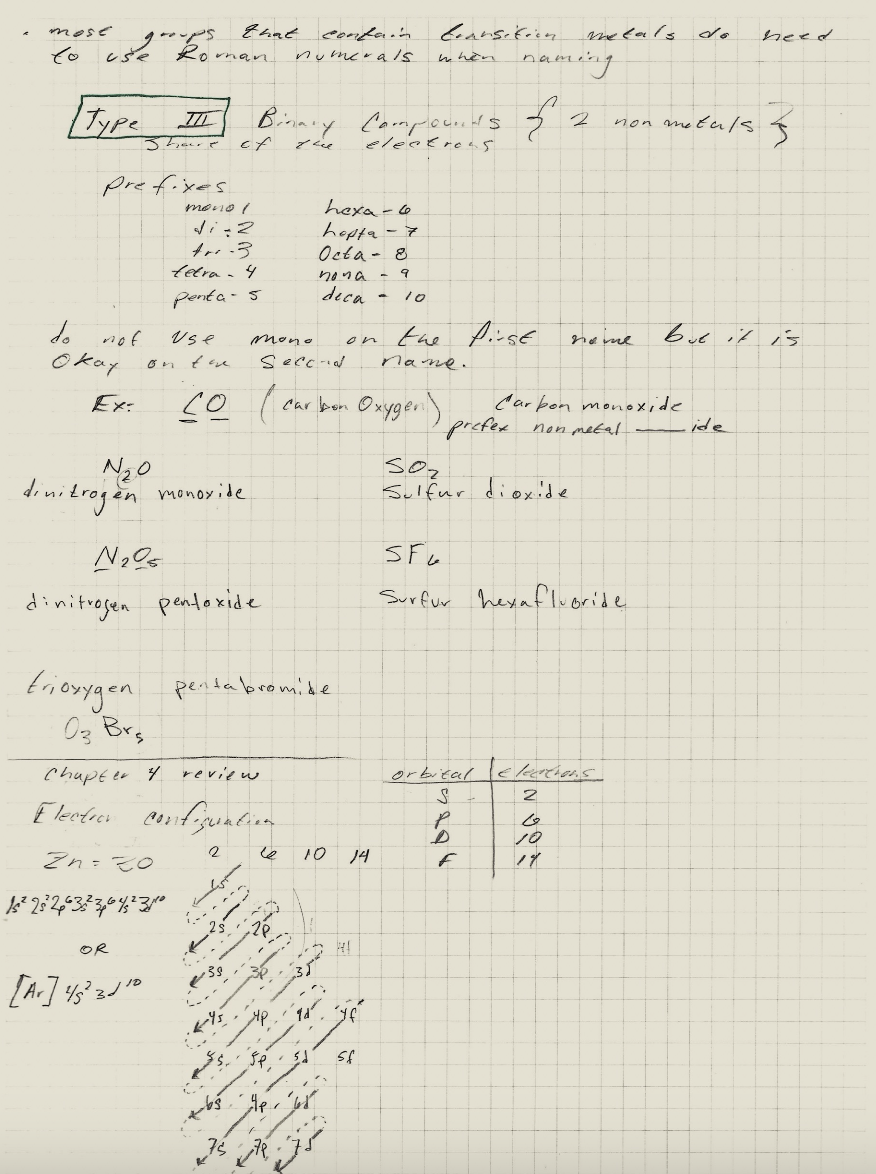 . most groups that contain transition metals do need
to use Roman numerals when naming
Type III Binary Compounds { 2 nonmetals }
Share of the electrons
Prefixes
mono 1 hexa - 6
di - 2 hepta - 7
tri - 3 Octa - 8
tetra - 4 nona - 9
penta - 5 deca - 10
do not use mono on the first name but it is
Okay on the Second name.
Ex: CO (carbon Oxygen) Carbon monoxide
prefex nonmetal ___ ide
N2O SO2
dinitrogen monoxide Sulfur dioxide
N2O5 SF6
dinitrogen pentoxide Surfur hexafluoride
trioxygen pentabromide
O3 Br5
Chapter 4 review orbital electrons
S 2
Electron configuration P 6
D 10
Zn = 2 6 10 14 F 14
1s
1s² 2s² 2p⁶ 3s² 3p⁶ 4s² 3d¹⁰
2s 2p
OR
3s 3p 3d
[Ar] 4s² 3d¹⁰
4s 4p 4d 4f
5s 5p 5d 5f
6s 6d
7s 7p 7d